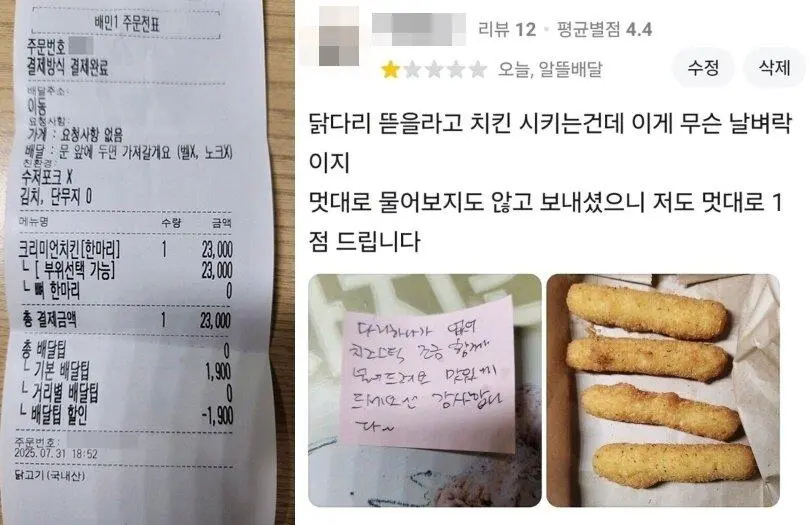 배민1 주문전표
주문번호
결제방식 결제완료
배달주소:
이동
요청사항:
가게 : 요청사항 없음
배달 : 문 앞에 두면 가져갈게요 (벨X, 노크X)
친환경:
수저포크 X
김치, 단무지 O
메뉴명 수량 금액
크리미언치킨[한마리] 1 23,000
ㄴ[ 부위선택 가능] 23,000
ㄴ 뼈 한마리 0
총 결제금액 1 23,000
총 배달팁 0
ㄴ 기본 배달팁 1,900
ㄴ 거리별 배달팁 0
ㄴ 배달팁 할인 -1,900
주문번호:
2025.07.31 18:52
닭고기(국내산)
리뷰 12 · 평균별점 4.4
오늘, 알뜰배달
수정
삭제
닭다리 뜯을라고 치킨 시키는건데 이게 무슨 날벼락
이지
멋대로 물어보지도 않고 보내셨으니 저도 멋대로 1
점 드립니다
다리하나가 없어
치즈스틱 조금 함께
보내드려요 맛있게
드세요 감사합니
다~